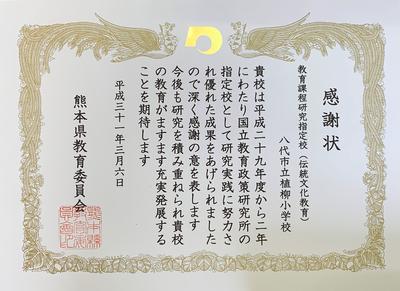 感謝状
教育課程研究指定校（伝統文化教育）
八代市立植柳小学校
貴校は平成二十九年度から二年
にわたり国立教育政策研究所の
指定校として研究実践に努力さ
れ優れた成果をあげられました
ので深く感謝の意を表します
今後も研究を積み重ねられ貴校
の教育がますます充実発展する
ことを期待します
平成三十一年三月六日
熊本県教育委員会